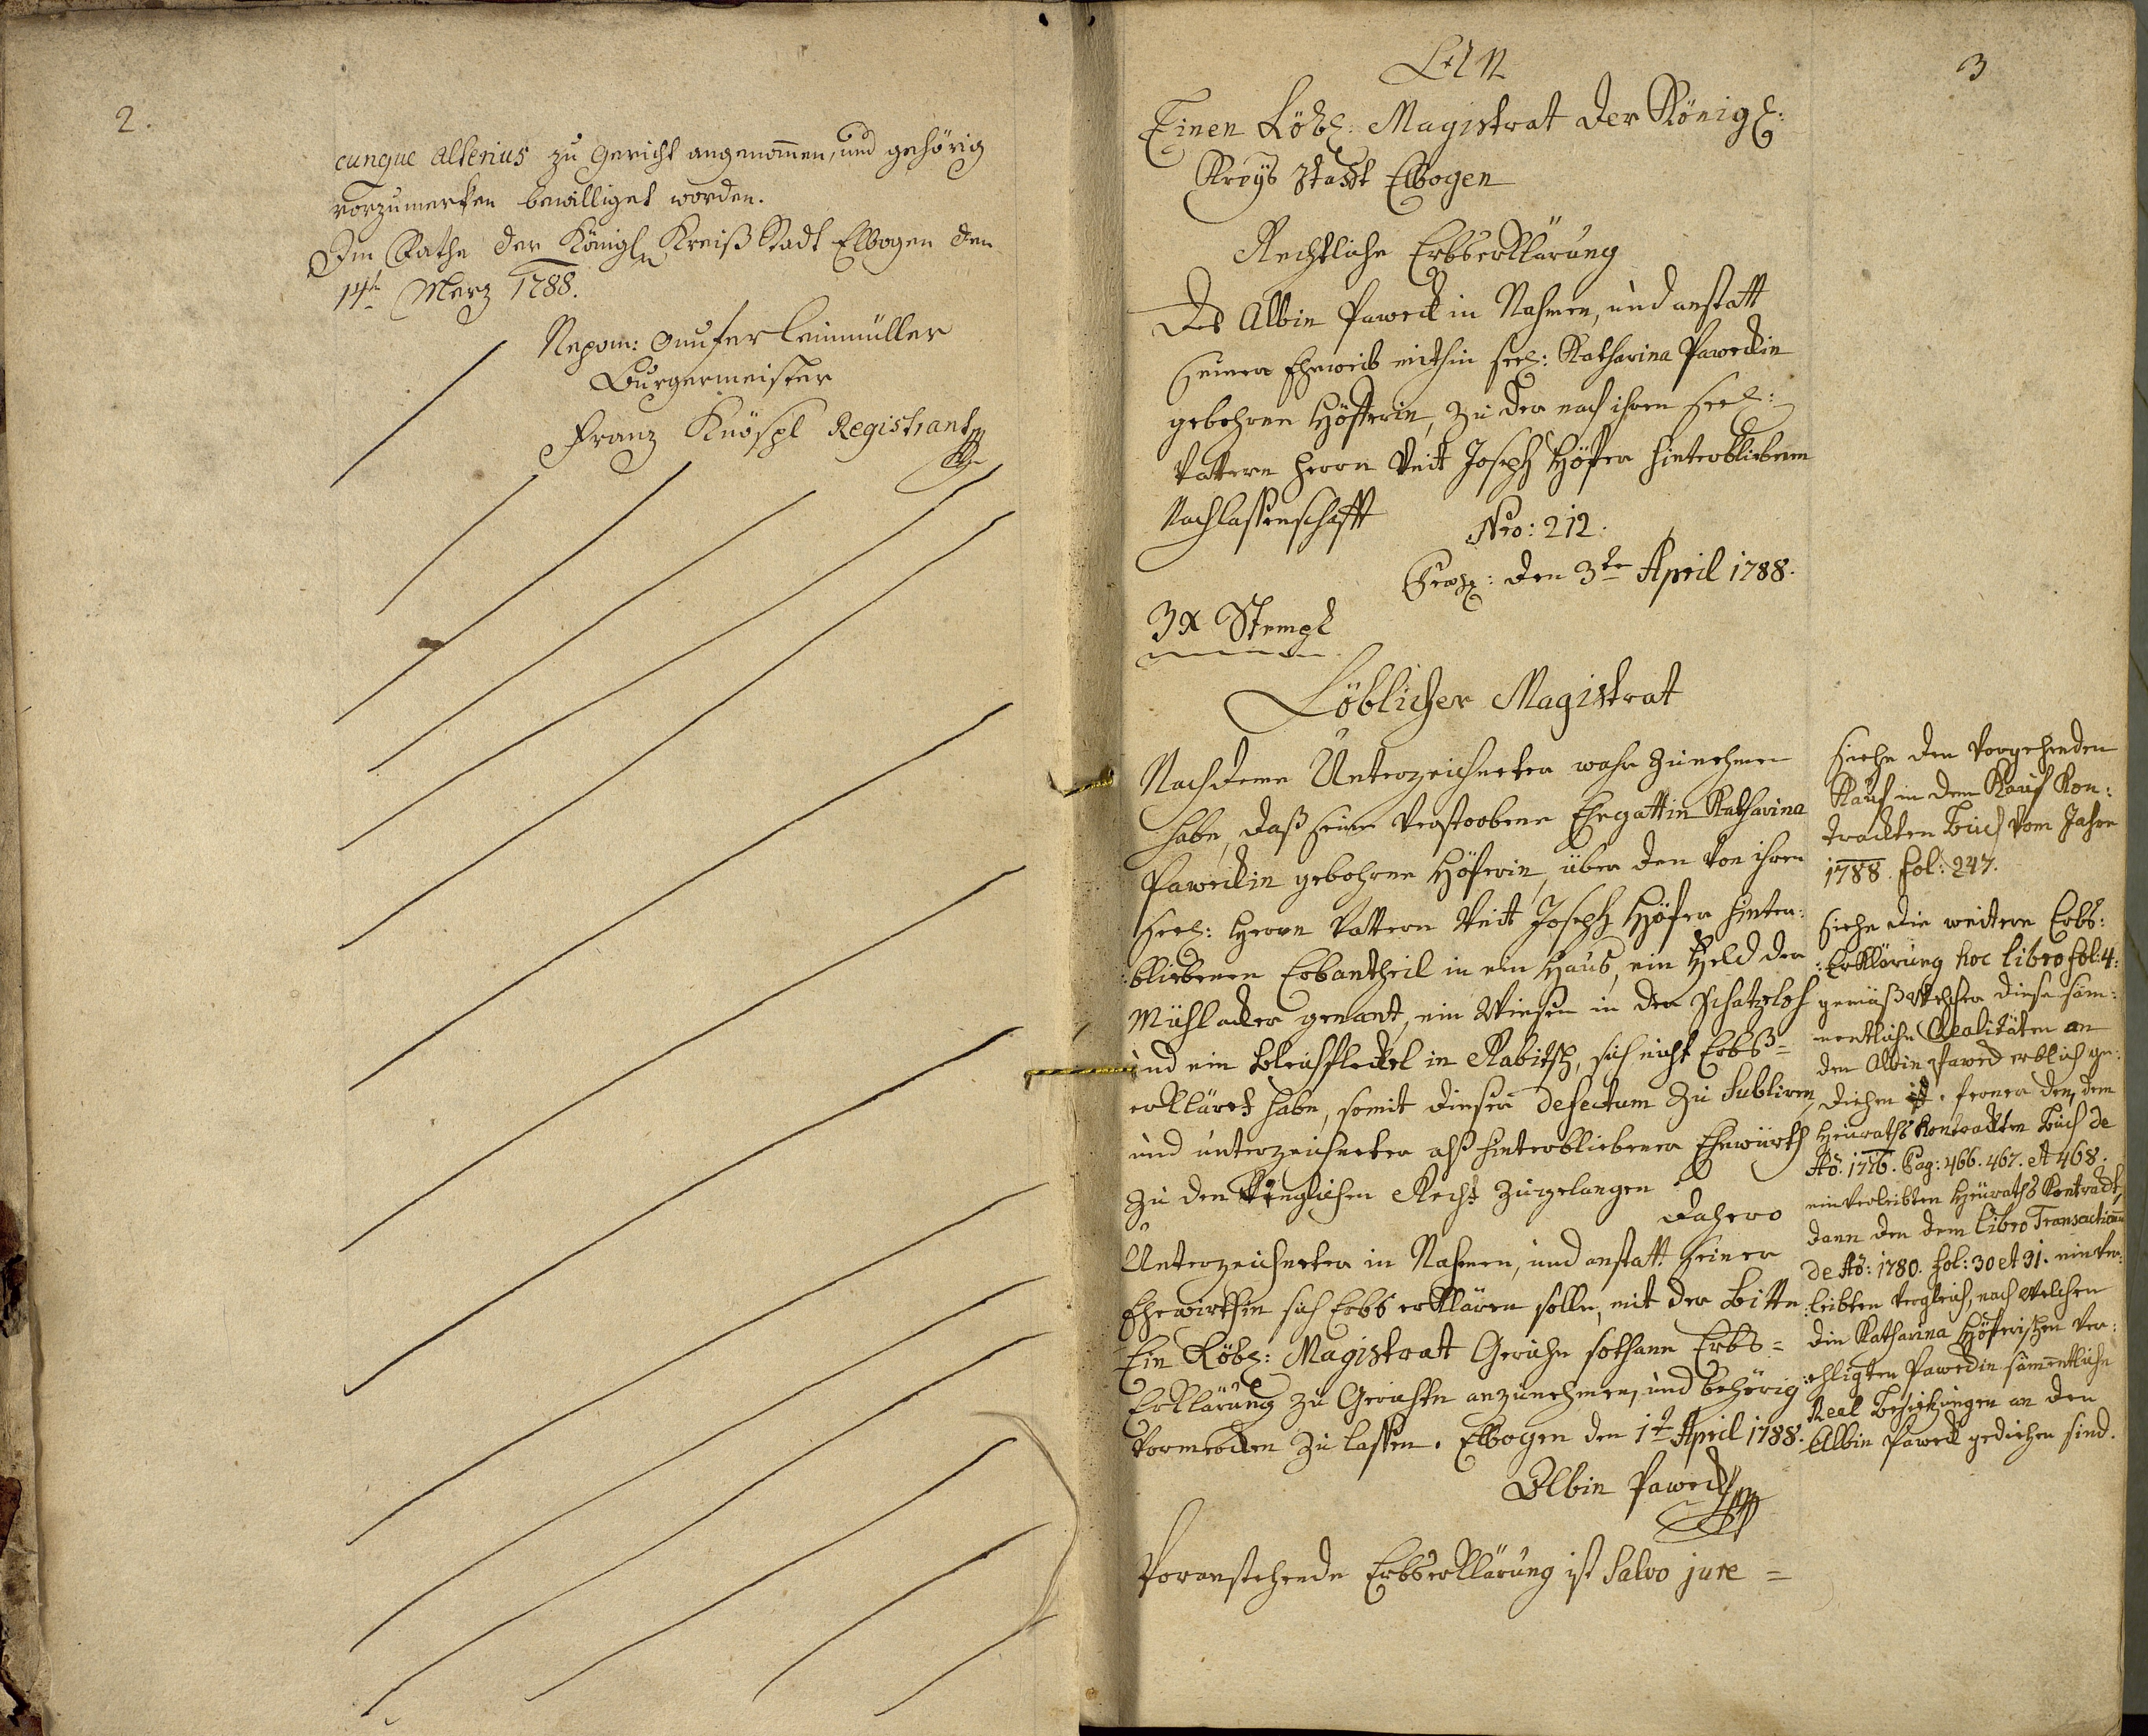 2.
cunque alterius zu Gericht angenommen, und gehörig
vorzumerken bewilliget worden.
Im Rathe der Königln Kreiß Stadt Elbogen den
14t März 1788.
Nepom: Leinmüller
Burgermeister
Franz Knöspl Registrant
3
An
Einen Löbl: Magistrat der Königl:
Kreys Stadt Elbogen
Rechtliche Erbserklärung
Des Albin Paweck in Nahmen, und anstatt
seiner Eheweib seel: Katharina Paweckin
gebohrne Höferin, zu der nach ihren seel:
Vattern Herrn Veit Joseph Höfer hinterbliebenen
Nachlassenschafft
Nro: 212.
den 3te April 1788.
3x Stempl
Löblicher Magistrat
Nachdeme Unterzeichneter wahr zunehmen
habe, daß seine verstorbene Ehegattin Katharina
Paweckin gebohrne Höferin, über den von ihren
seel: Herrn Vattern Veit Joseph Höfer hinter:
:bliebenen Erbantheil in ein Haus, ein Feld der
Mühlacker genant, ein Wiesen in der Schatzloh
und ein Bleichfleckel in Rabitsch, sich nicht Erbs=
erkläret habe, somit diesen defectum zu
und unterzeichneter alß hinterbliebener Ehewürth
zu den Recht zugelangen
Dahero
Unterzeichneter in Nahmen, und anstatt seiner
Ehewirthin sich Erbs erklären solle, mit der Bitte
Ein Löbl: Magistratt Geruhe sothane Erbs=
Erklärung zu Gerichte anzunehmen, und behörig
vormerken zu lassen. Elbogen den 1t April 1788.
Albin Paweck
Voranstehende Erbserklärung ist Salvo jure =
Siehe den vorgehenden
Kauf in dem Kauf Kon:
trackten Buch vom Jahre
1788. fol: 247.
Siehe die weitere Erbs:
:Erklärung hoc libro fol: 4:
gemäß welcher diese säm:
mentliche Realitäten an
den Albin Paweck erblich ge:
diehen ist. ferner den, dem
Heuraths Kontrackten Buch de
Ao: 1776. Pag: 466. 467. et 468.
einverleibten Heuraths Kontrackt,
dann den dem libro Transactionum
de Ao: 1780. fol: 30 et 31. einver:
:leibten Vergleich, nach welchen
die Katharina Höferischen ver:
:ehligten Paweckin sämmentliche
Real Besitzungen an den
Albin Paweck gediehen sind.